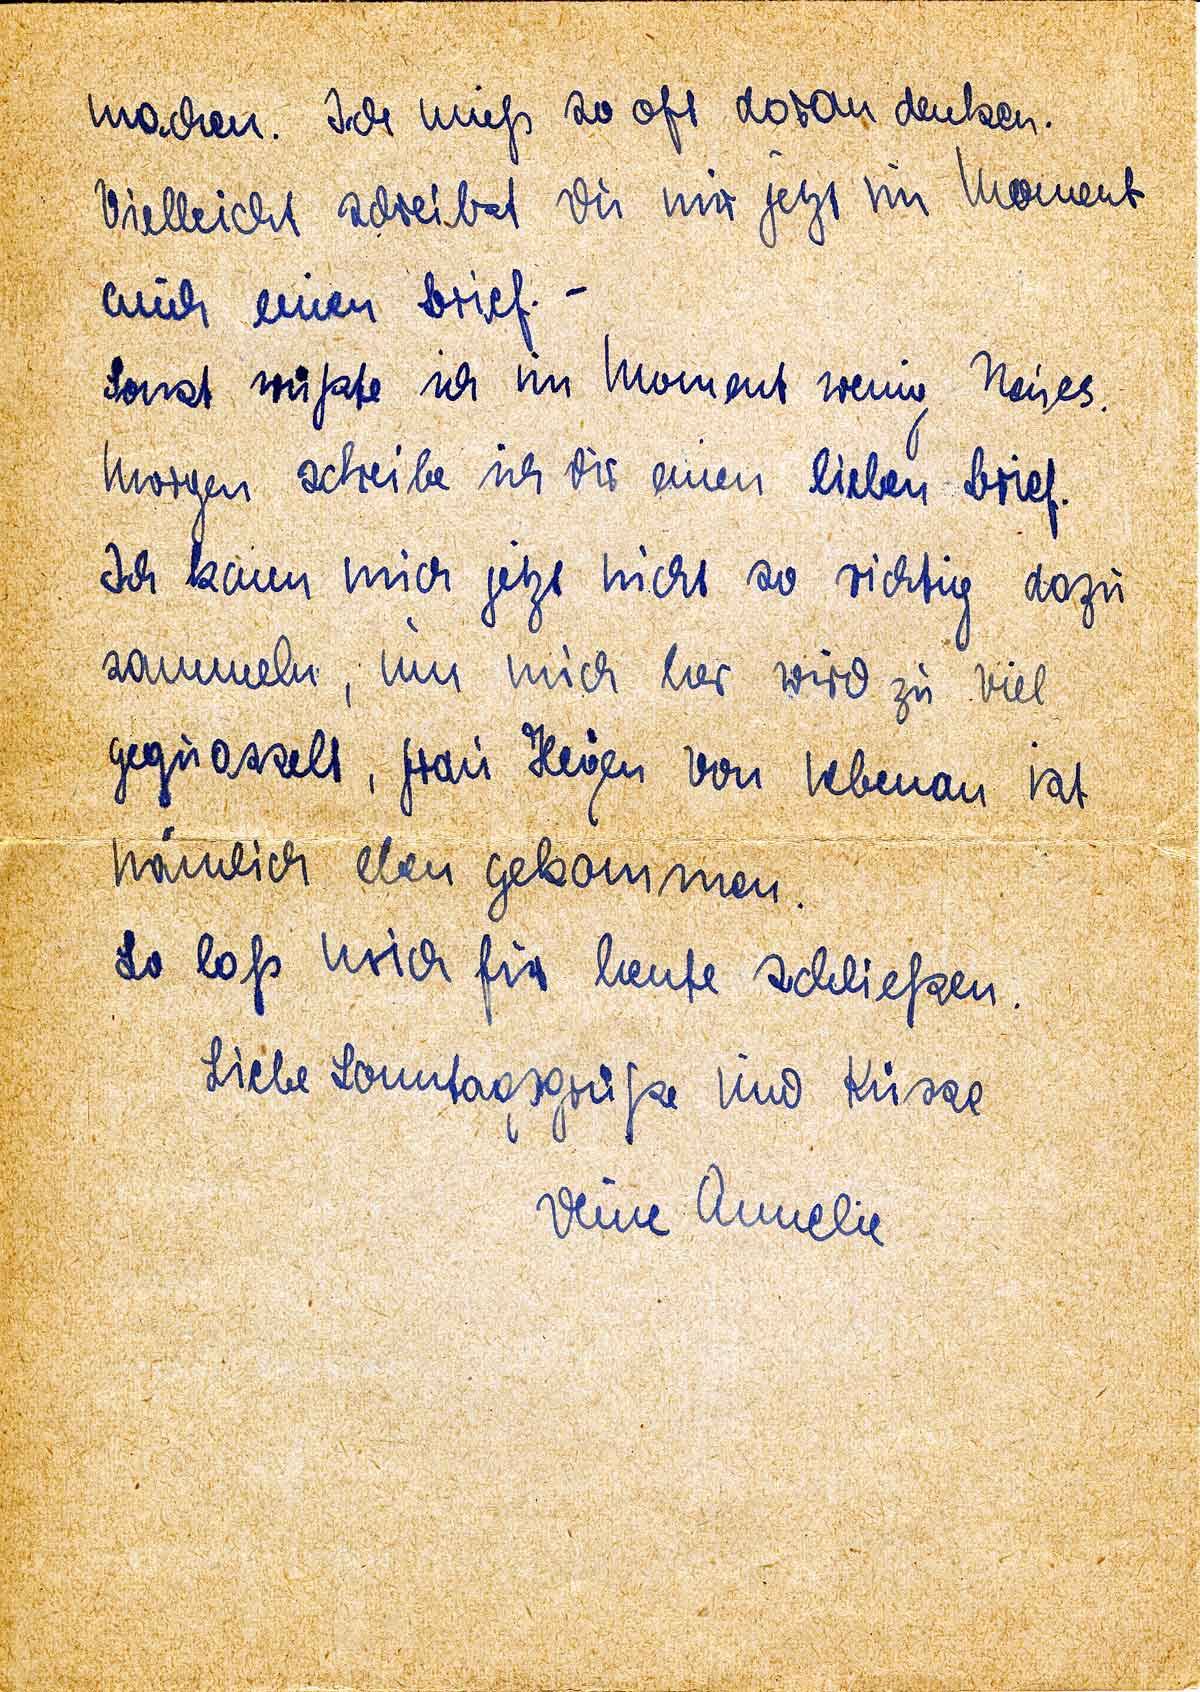 machen. Ich muß so oft daran denken.
Vielleicht schreibst Du mir jetzt im Moment
auch einen Brief. -
Sonst wüßte ich im Moment wenig Neues.
Morgen schreibe ich Dir einen lieben Brief.
Ich kann mich jetzt nicht so richtig dazu
sammeln, um mich her wird zu viel
gequasselt, Frau von nebenan ist
nämlich eben gekommen.
So laß mich für heute schließen.
Liebe Sonntagsgrüße und Küsse
Deine Annelie